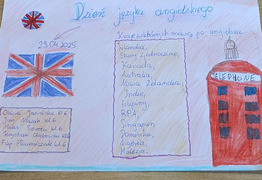 Dzień języka angielskiego
29.04.2025
Kraje w których mówią po angielsku
Irlandia,
Stany Zjednoczone,
Kanada,
Australia,
Nowa Zelandia,
Indie,
Filipiny,
RPA,
Singapur,
Jamajka,
Nigeria,
Malezja,
TELEPHONE
kl. 6
kl. 6
kl. 6
kl. 6
kl. 6